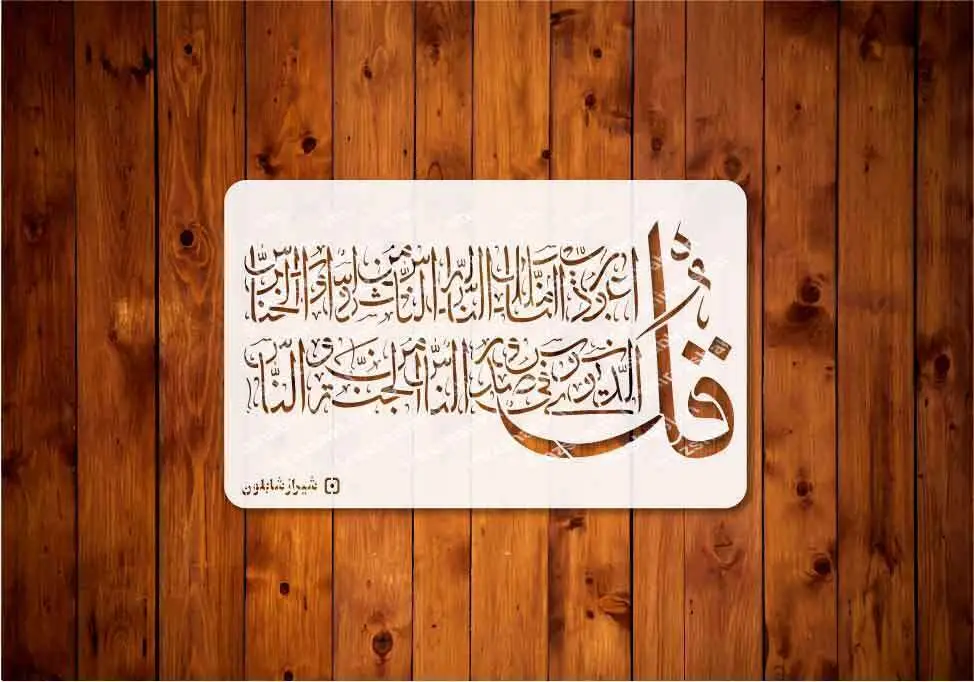 قُل
اعوذ برب الناس ملك الناس اله الناس من شر الوسواس الخناس
الذی یوسوس فی صدور الناس من الجنة و الناس
شیراز شابلون